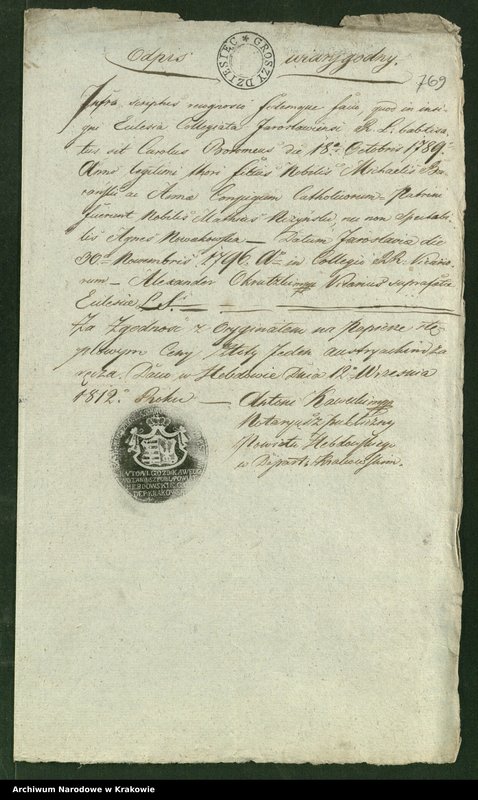 Odpis wiarygodny.
DZIESIĘĆ * GROSZY
769
Infra scriptus recognosco fidemque facio quod in insi-
gni Eclesia Collegiata Jaroslaviensi R. L. babtisa-
tus sit Carolus Boromeus die 18a Octobris 1789o
Anno legitimi thori filius Nobilis Michaelis
ac Anna Conjugum Catholicorum Patrini
fuerunt Nobilis Mathias nec non Spectabi-
lis Agnes Nowakowska — Datum Jaroslavia die
30a Novembris 1796. Ao in Collegio RR. Vicario-
rum — Alexander Vicarius suprafata
Eclesia L.S.
Za Zgodność z Oryginałem na Papierze ste-
plowym Ceny Złoty Jeden austryacki
ręcza. Dan w Hebdowie Dnia 12o Września
1812o Roku — Antoni Kawecki mpp
Notaryusz publiczny
Powiatu Hebdowskiego
w Depart. Krakowskim.
ANTONI GOZDAWA KAWECKI
NOTARIUSZ PUBL. POW
HEBDOWSKIEGO
DEP. KRAKOW
Archiwum Narodowe w Krakowie